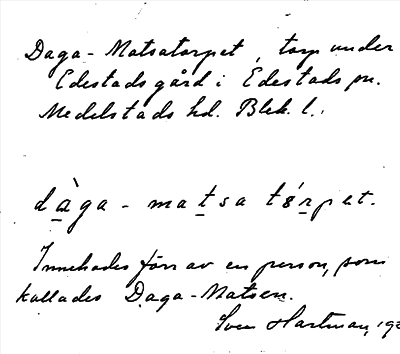 Daga-Matsatorpet, torp under
Edestads gård i Edestads sn.
Medelstads hd. Blek. l.
dàga - matsa tórpet.
Innehades förr av en person, som
kallades Daga-Matsen.
Sven Hartman, 192